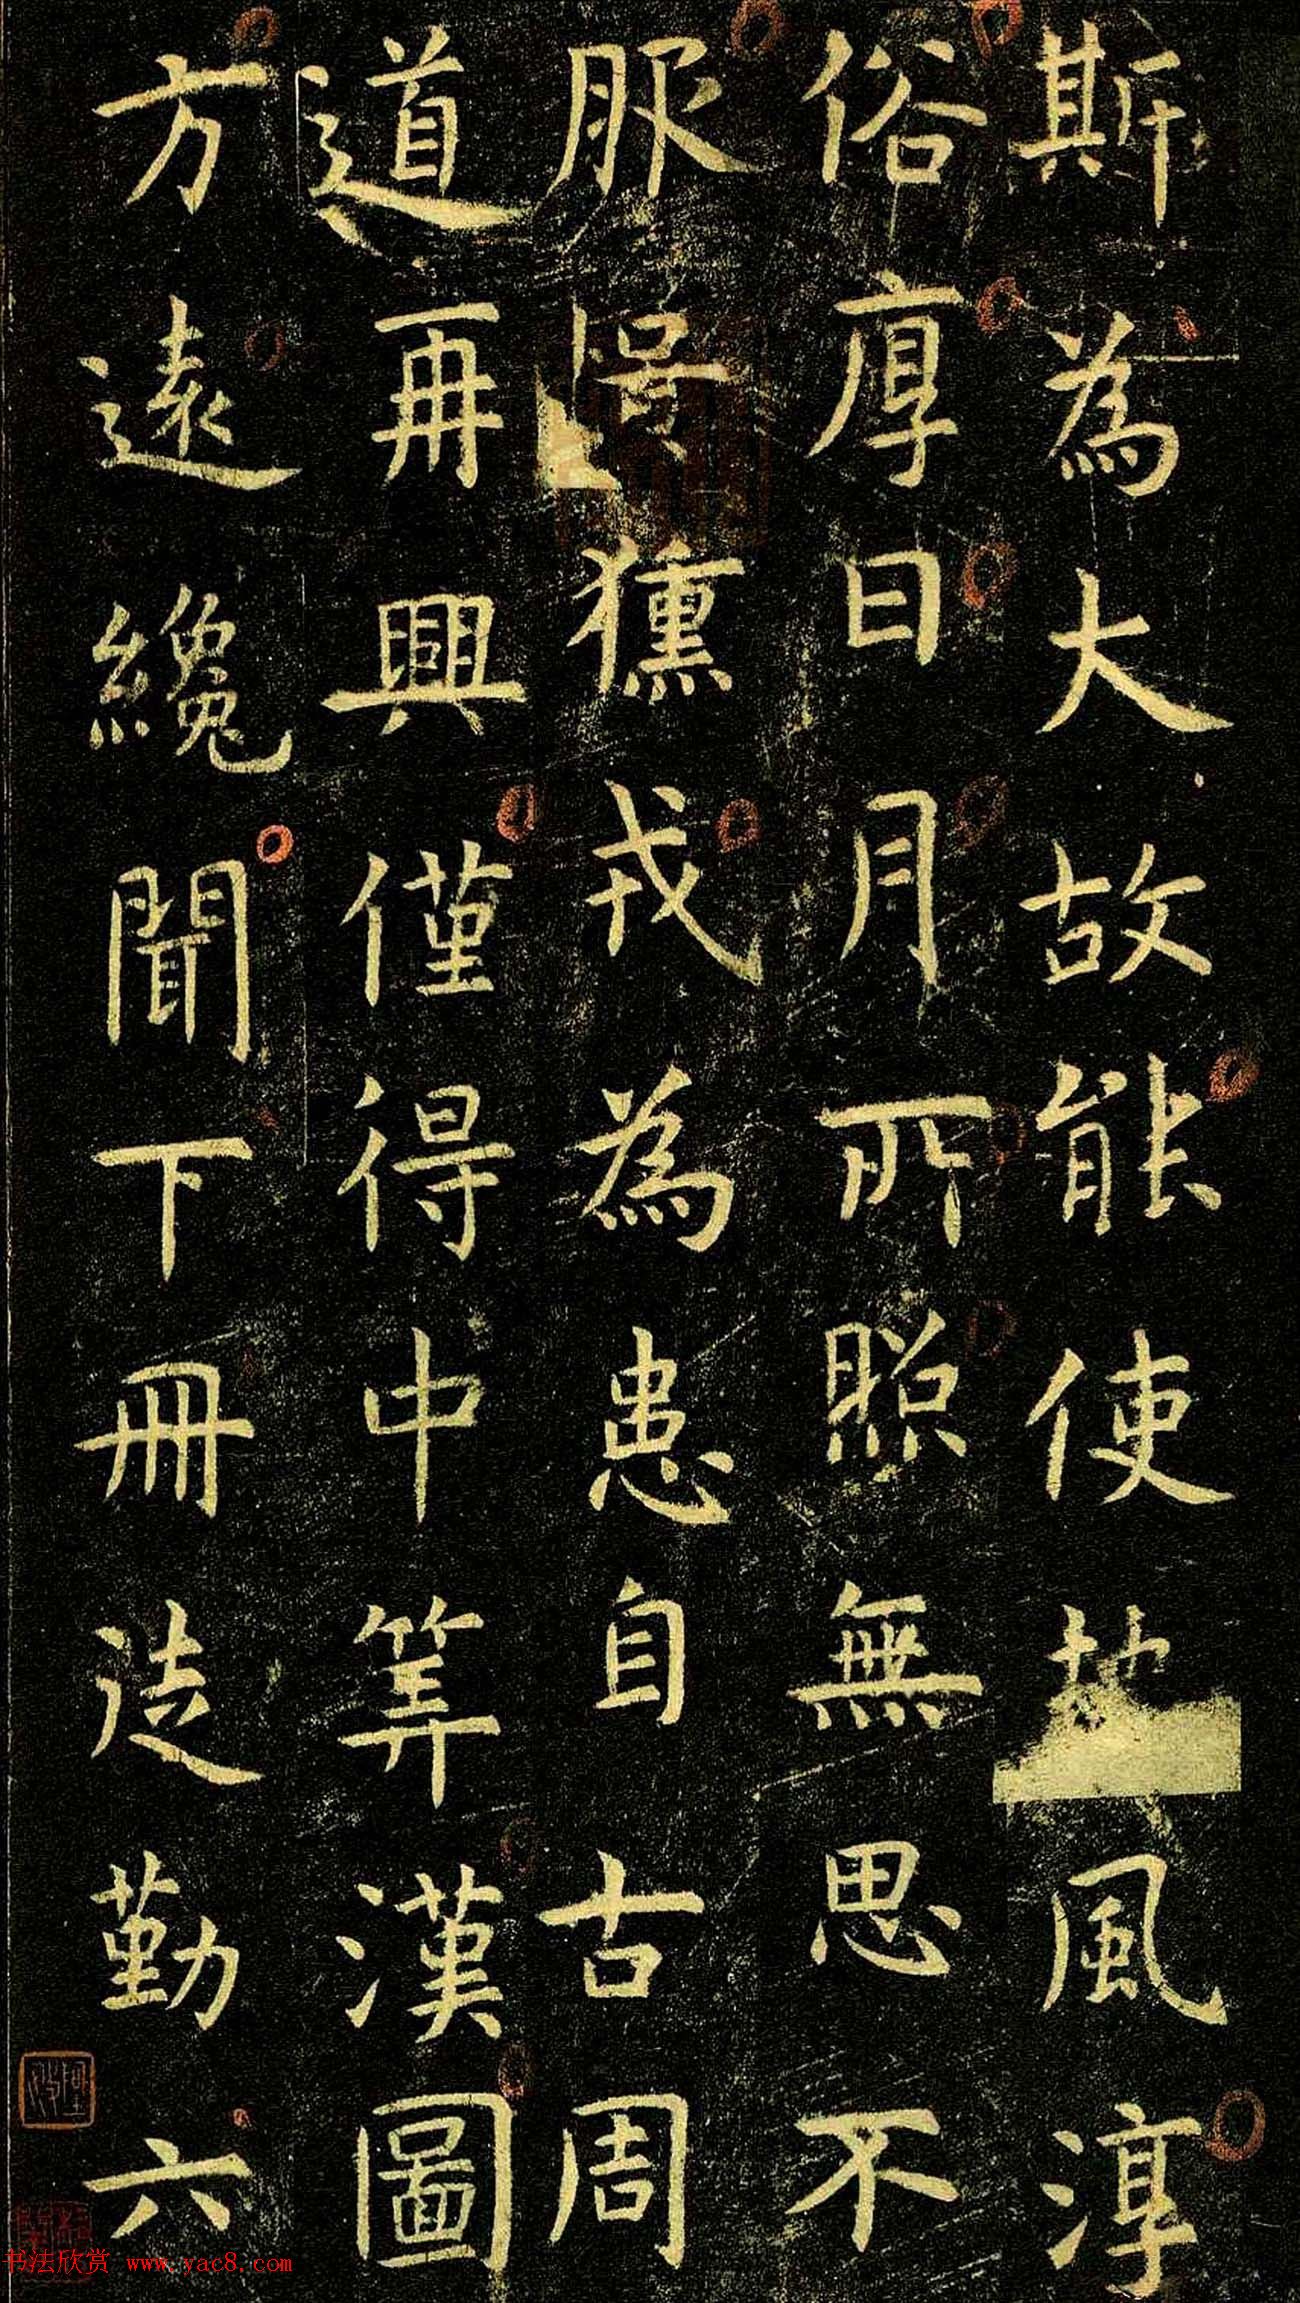 斯為大故能使地風淳
俗厚日月所照無思不
服獯戎為患自古周
道再興僅得中筭漢圖
方遠纔聞下冊徒勤六
书法欣赏 www.yac8.com